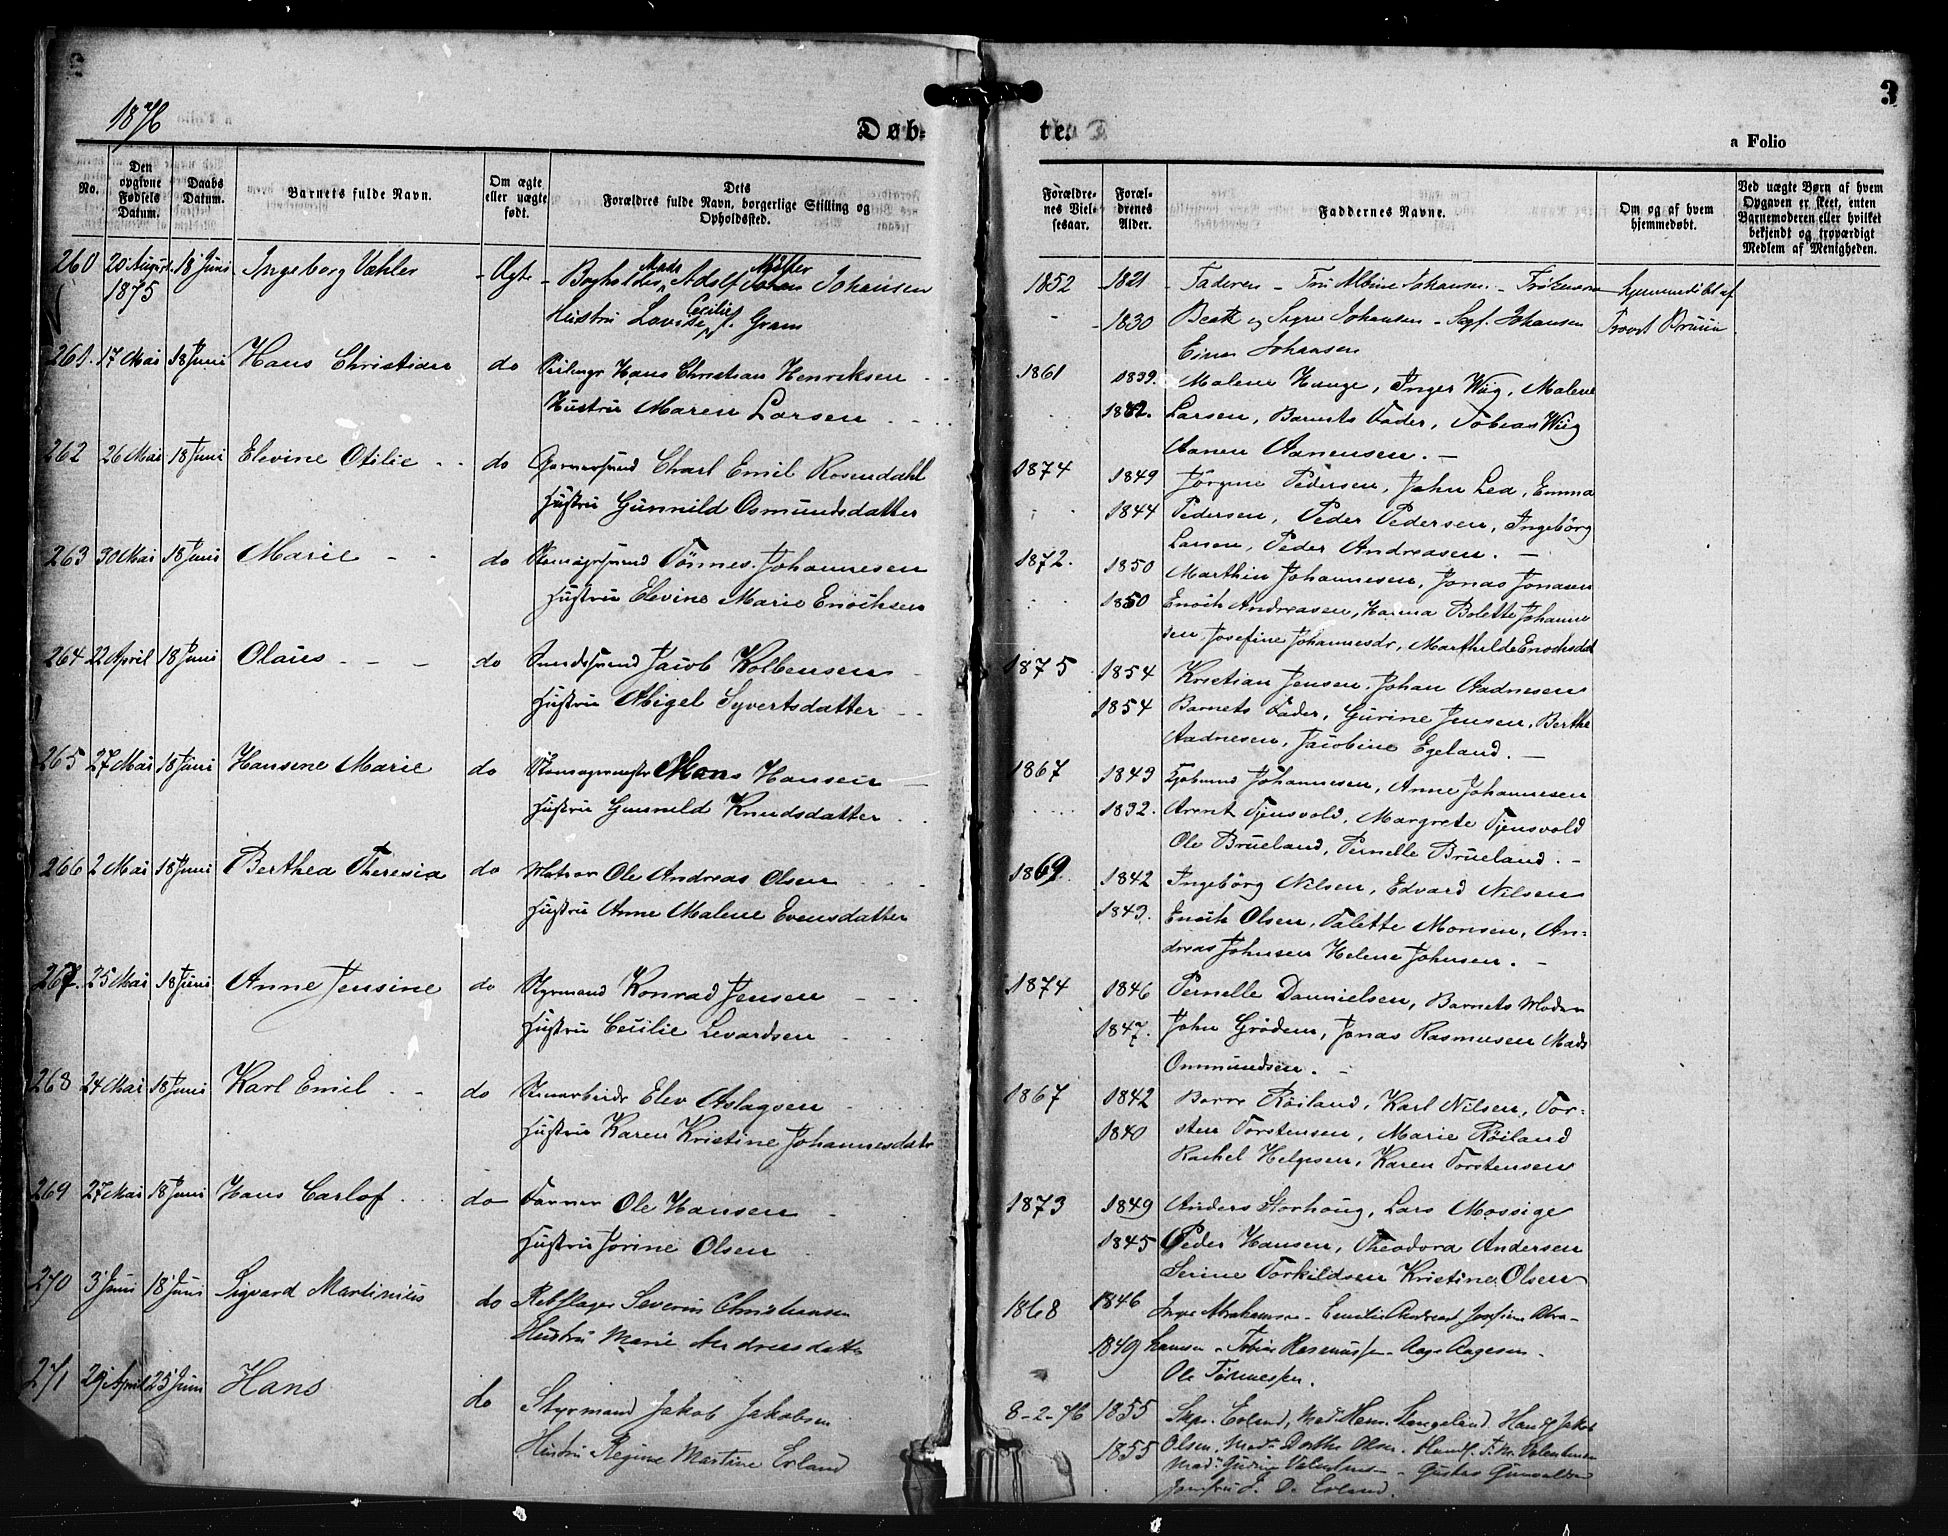 1876
Døb-
te.
3
a Folio
No.
Den opgivne Fødsels Datum.
Daabs Datum.
Barnets fulde Navn.
Om ægte eller uægte født.
Dets Forældres fulde Navn, borgerlige Stilling og Opholdssted.
Forældrenes Vielsesaar.
Forældrenes Alder.
Faddernes Navne.
Om og af hvem hjemmedøbt.
Ved uægte Børn af hvem Opgaven er skeet, enten Barnemoderen eller hvilket bekjendt og troværdigt Medlem af Menigheden.
260 20 August 18 Juni Ingeborg Væhler Ægte Bogholder Mads Adolf Møller Johansen 1852 1821 Faderen Fru Albine Johansen Frøknerne hjemmedøbt af
1875 Hustru Lovise Cecilie f. Gram 1830 Beate og Signe Johansen Johansen Provst Bruun
Einar Johansen
261. 17 Mai 18 Juni Hans Christian do Hans Christian Henriksen 1861 1839. Malene Hauge, Inger Wiig, Malene
Hustru Maren Larsen Larsen, Barnets Fader, Tobias Wiig
Aanen Aanensen.
262 26 Mai 18 Juni Elevine Otilie do Garversvend Charl Emil Rosendahl 1874 1849 Jörgine Pedersen, John Lea, Emma
Hustru Gunnild Osmundsdatter 1844 Pedersen, Peder Pedersen, Ingebörg
Larsen, Peder Andreasen.
263 30 Mai 18 Juni Marie do Tönnes Johannesen 1872. 1850 Marthin Johannesen, Jonas Jonasen
Hustru Elevine Marie Enochsen 1850 Enoch Andreasen, Hanna Bolette Johanne
sen, Josefine Johannesdr, Marthilde Enochsdat
264 22 April 18 Juni Olaus do Jacob Kolbensen 1875 1854 Kristian Jensen, Johan Aadnesen
Hustru Abigel Syvertsdatter 1854 Barnets Fader, Gurine Jensen, Berthe
Aadnesen, Jacobine Egeland.
265 27 Mai 18 Juni Hansine Marie do Skomagermester Mons Hansen 1867 1843 Johannesen, Anne Johannesen
Hustru Gunnild Knudsdatter 1832. Arent Tjensvold, Margrete Tjensvold
Ole Brueland, Pernelle Brueland.
266 2 Mai 18 Juni Berthea Theresia do Matros Ole Andreas Olsen 1869 1842 Ingebörg Nilsen, Edvard Nilsen
Hustru Anne Malene Evensdatter 1843. Enoch Olsen, Valette Monsen, An-
dreas Johnsen Helene Johnsen.
267. 25 Mai 18 Juni Anne Jensine do Styrmand Konrad Jensen 1874 1846 Pernelle Dannielsen, Barnets Moder
Hustru Cecilie Levardsen 1847. John Gröden, Jonas Rasmusen Mads
Ommundsen.
268 24 Mai 18 Juni Karl Emil do Elev Aslagsen 1867 1842 Röiland, Karl Nilsen, Tor-
Hustru Karen Kristine Johannesdatr 1840 sten Torstensen, Marie Röiland
Rachel Helgesen, Karen Torstensen
269 27 Mai 18 Juni Hans Carlof do Farver Ole Hansen 1873 1849 Anders Storhoug, Lars Mossige
Hustru Jorine Olsen 1845 Peder Hansen, Theodora Andersen
Serine Torkildsen Kristine Olsen
270 3 Juni 18 Juni Sigvard Martinius do Rebslager Severin Christensen 1868 1846 Abrahamsen Josefine Abra-
Hustru Marie Andreasdatter 1849 hamsen Tobias Rasmussen Aage Aagesen
Ole Tönnessen.
271 29 April 25 Juni Hans do Styrmand Jakob Jakobsen 8-2-76 1855 Skpr. Erland, Mad. Langeland Jakob
Hustru Regine Martine Erland 1855 Olsen, Mad. Dorthe Olsen Valentinsen
Mad. Valentinsen Gustav
E. D. Erland.